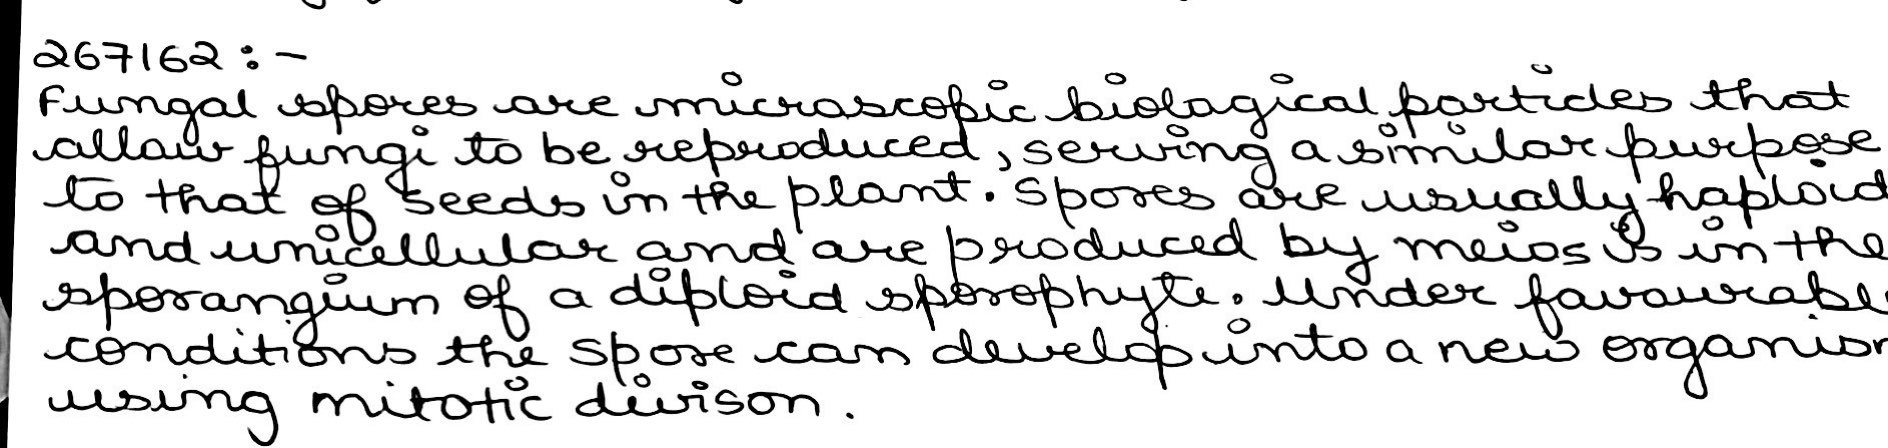 267162 : -
Fungal spores are microscopic biological particles that
allow fungi to be reproduced, serving a similar purpose
to that of seeds in the plant. Spores are usually haploid
and unicellular and are produced by meiosis in the
sporangium of a diploid sporophyte. Under favourable
conditions the spore can develop into a new organism
using mitotic divison.